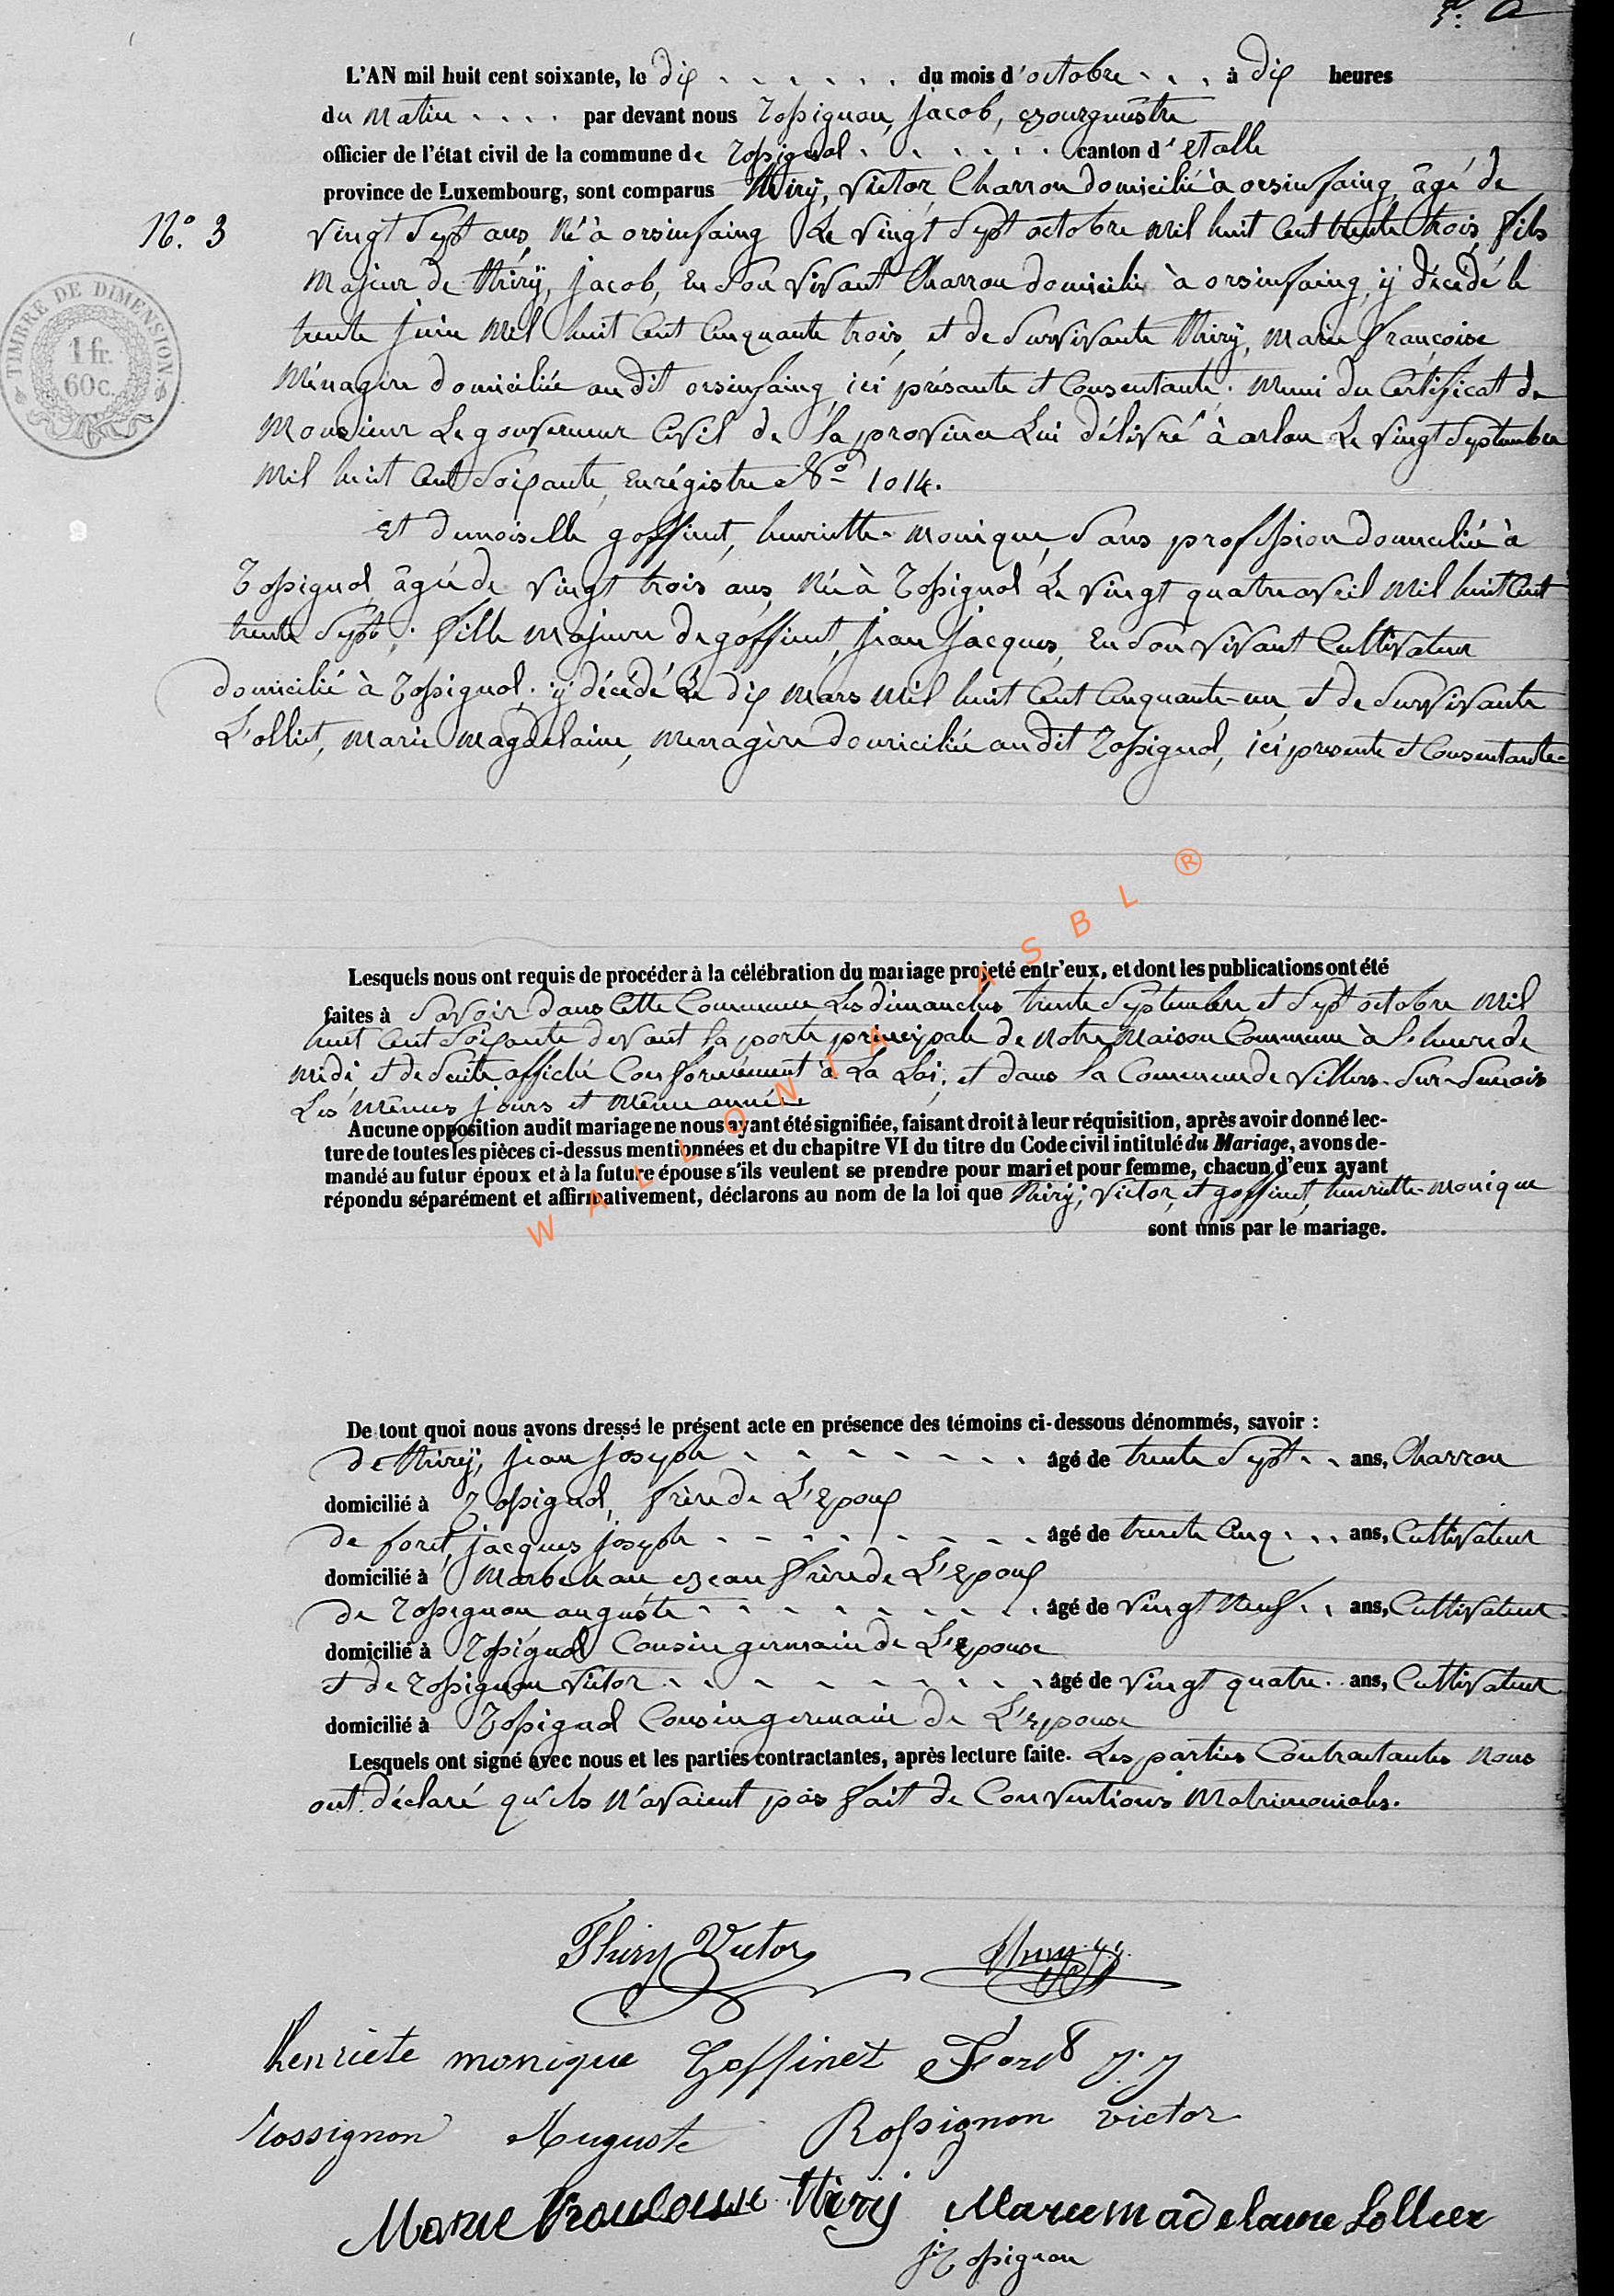 L'AN mil huit cent soixante, le dix du mois d'octobre à dix heures
du matin par devant nous Rossignon, Jacob, Bourgmestre
officier de l'état civil de la commune de Rossignol canton d'Etalle
province de Luxembourg, sont comparus Thirÿ, Victor, Charron domicilié à orsinfaing, âgé de
N.° 3
vingt Sept ans, Né à orsinfaing Le vingt Sept octobre mil huit Cent trente trois, fils
Majeur de thirÿ, Jacob, En Son vivant Charron domicilié à orsinfaing, ÿ décédé le
trente Juin Mil huit Cent Cinquante trois, et de Survivante thirÿ, Marie françoise
Ménagère domiciliée au dit orsinfaing, ici présente et Consentante. Muni du Certificat de
Monsieur Le gouverneur Civil de la province Lui délivré à arlon Le vingt Septembre
Mil huit Cent Soixante, Enrégistré N° 1014.
Et demoiselle goffinet, henriette-monique, Sans profession domiciliée à
Rossignol, âgée de vingt trois ans, Née à Rossignol Le vingt quatre avril Mil huit Cent
trente Sept; fille majeure de goffinet, Jean Jacques, En Son vivant Cultivateur
domicilié à Rossignol, ÿ décédé Le dix Mars Mil huit Cent Cinquante-un, et de Survivante
L'olliet, Marie Magdelaine, Menagère domiciliée au dit Rossignol, ici presente et Consentante
Lesquels nous ont requis de procéder à la célébration du mariage projeté entr'eux, et dont les publications ont été
faites à Savoir dans Cette Commune Les dimanches trente Septembre et Sept octobre Mil
huit Cent Soixante devant la porte principale de Notre Maison Commune à l'heure de
midi, et de Suite affiché Conformément à La Loi; et dans la Commune de Villers-Sur-Semois
Les Mêmes Jours et Même année.
Aucune opposition audit mariage ne nous ayant été signifiée, faisant droit à leur réquisition, après avoir donné lec-
ture de toutes les pièces ci-dessus mentionnées et du chapitre VI du titre du Code civil intitulé du Mariage, avons de-
mandé au futur époux et à la future épouse s'ils veulent se prendre pour mari et pour femme, chacun d'eux ayant
répondu séparément et affirmativement, déclarons au nom de la loi que thirÿ; Victor, et goffinet, henriette-Monique
sont unis par le mariage.
De tout quoi nous avons dressé le présent acte en présence des témoins ci-dessous dénommés, savoir :
de thirÿ, Jean Joseph âgé de trente Sept ans, Charron
domicilié à Rossignol, frère de L'Epoux
de foret, Jacques Joseph âgé de trente Cinq ans, Cultivateur
domicilié à Marbehan, Beau frère de L'Epoux
de Rossignon auguste âgé de vingt Neuf ans, Cultivateur
domicilié à Rossignol Cousin germain de L'Epouse
et de Rossignon Victor âgé de vingt quatre ans, Cultivateur
domicilié à Rossignol Cousin germain de L'Epouse
Lesquels ont signé avec nous et les parties contractantes, après lecture faite. Les parties Contractantes Nous
ont déclaré qu'ils N'avaient pas fait de Conventions Matrimoniales.
Thiry Victor Thiry JJ
henriete monique Goffinet Foret J. J
Rossignon Auguste Rossignon victor
Marie francoisse thirÿ Marie madelaine Lolliet
J. Rossignon
TIMBRE DE DIMENSION
1 fr.
60c.
WALLONIA ASBL ®